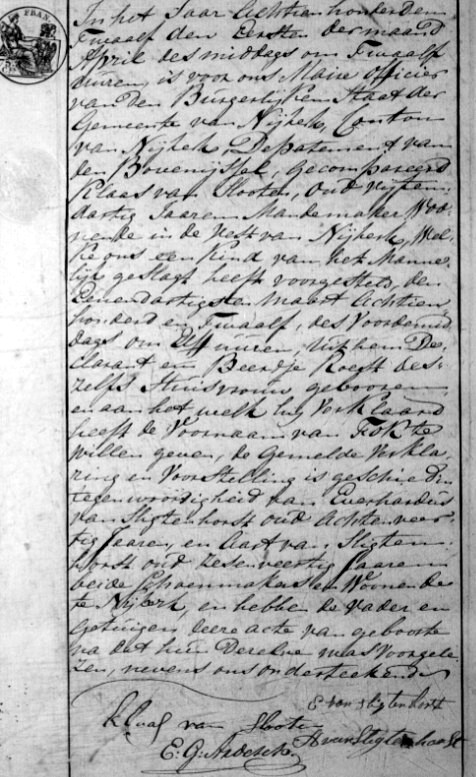 In het Jaar Achtien honderd en
Twaalf den Eersten der maand
April des middags om Twaalf
uuren, is voor ons Maire officier
van den Burgerlijken Staat der
Gemeente van Nijkerk, Canton
van Nijkerk Departement van
den Bovenijssel, Gecompareerd
Klaas van Slooten, oud vijfen
dartig Jaaren Mandemaker Woo-
nende in de Vest van Nijkerk, Wel-
ke ons een Kind van het Manne-
lijk geslagt heeft voorgesteld, den
Eenendartigsten Maart Achtien
honderd en Twaalf, des Voormid
dags om Elf uuren, uit hem De-
clarant en Beertje Roest des-
zelfs Huisvrouw gebooren
en aan het welk hij Verklaard
heeft de Voornaam van Fok te
willen geven, de Gemelde Verkla-
ring en Voorstelling is geschied in
tegenwoordigheid van Everhardus
van Sligtenhorst oud Achtenveer-
tig Jaaren, en Aart van Sligten-
horst oud Zesenveertig Jaaren
beide Schoenmakers en Woonende
te Nijkerk, en hebben de vader en
getuigen deeze acte van geboorte
na dat hun Dezelve was Voorgele-
zen, nevens ons onderteekend
E van Sligtenhorst
Klaas van Slooten
A van Sligtenhorst
E. G. Ardesch